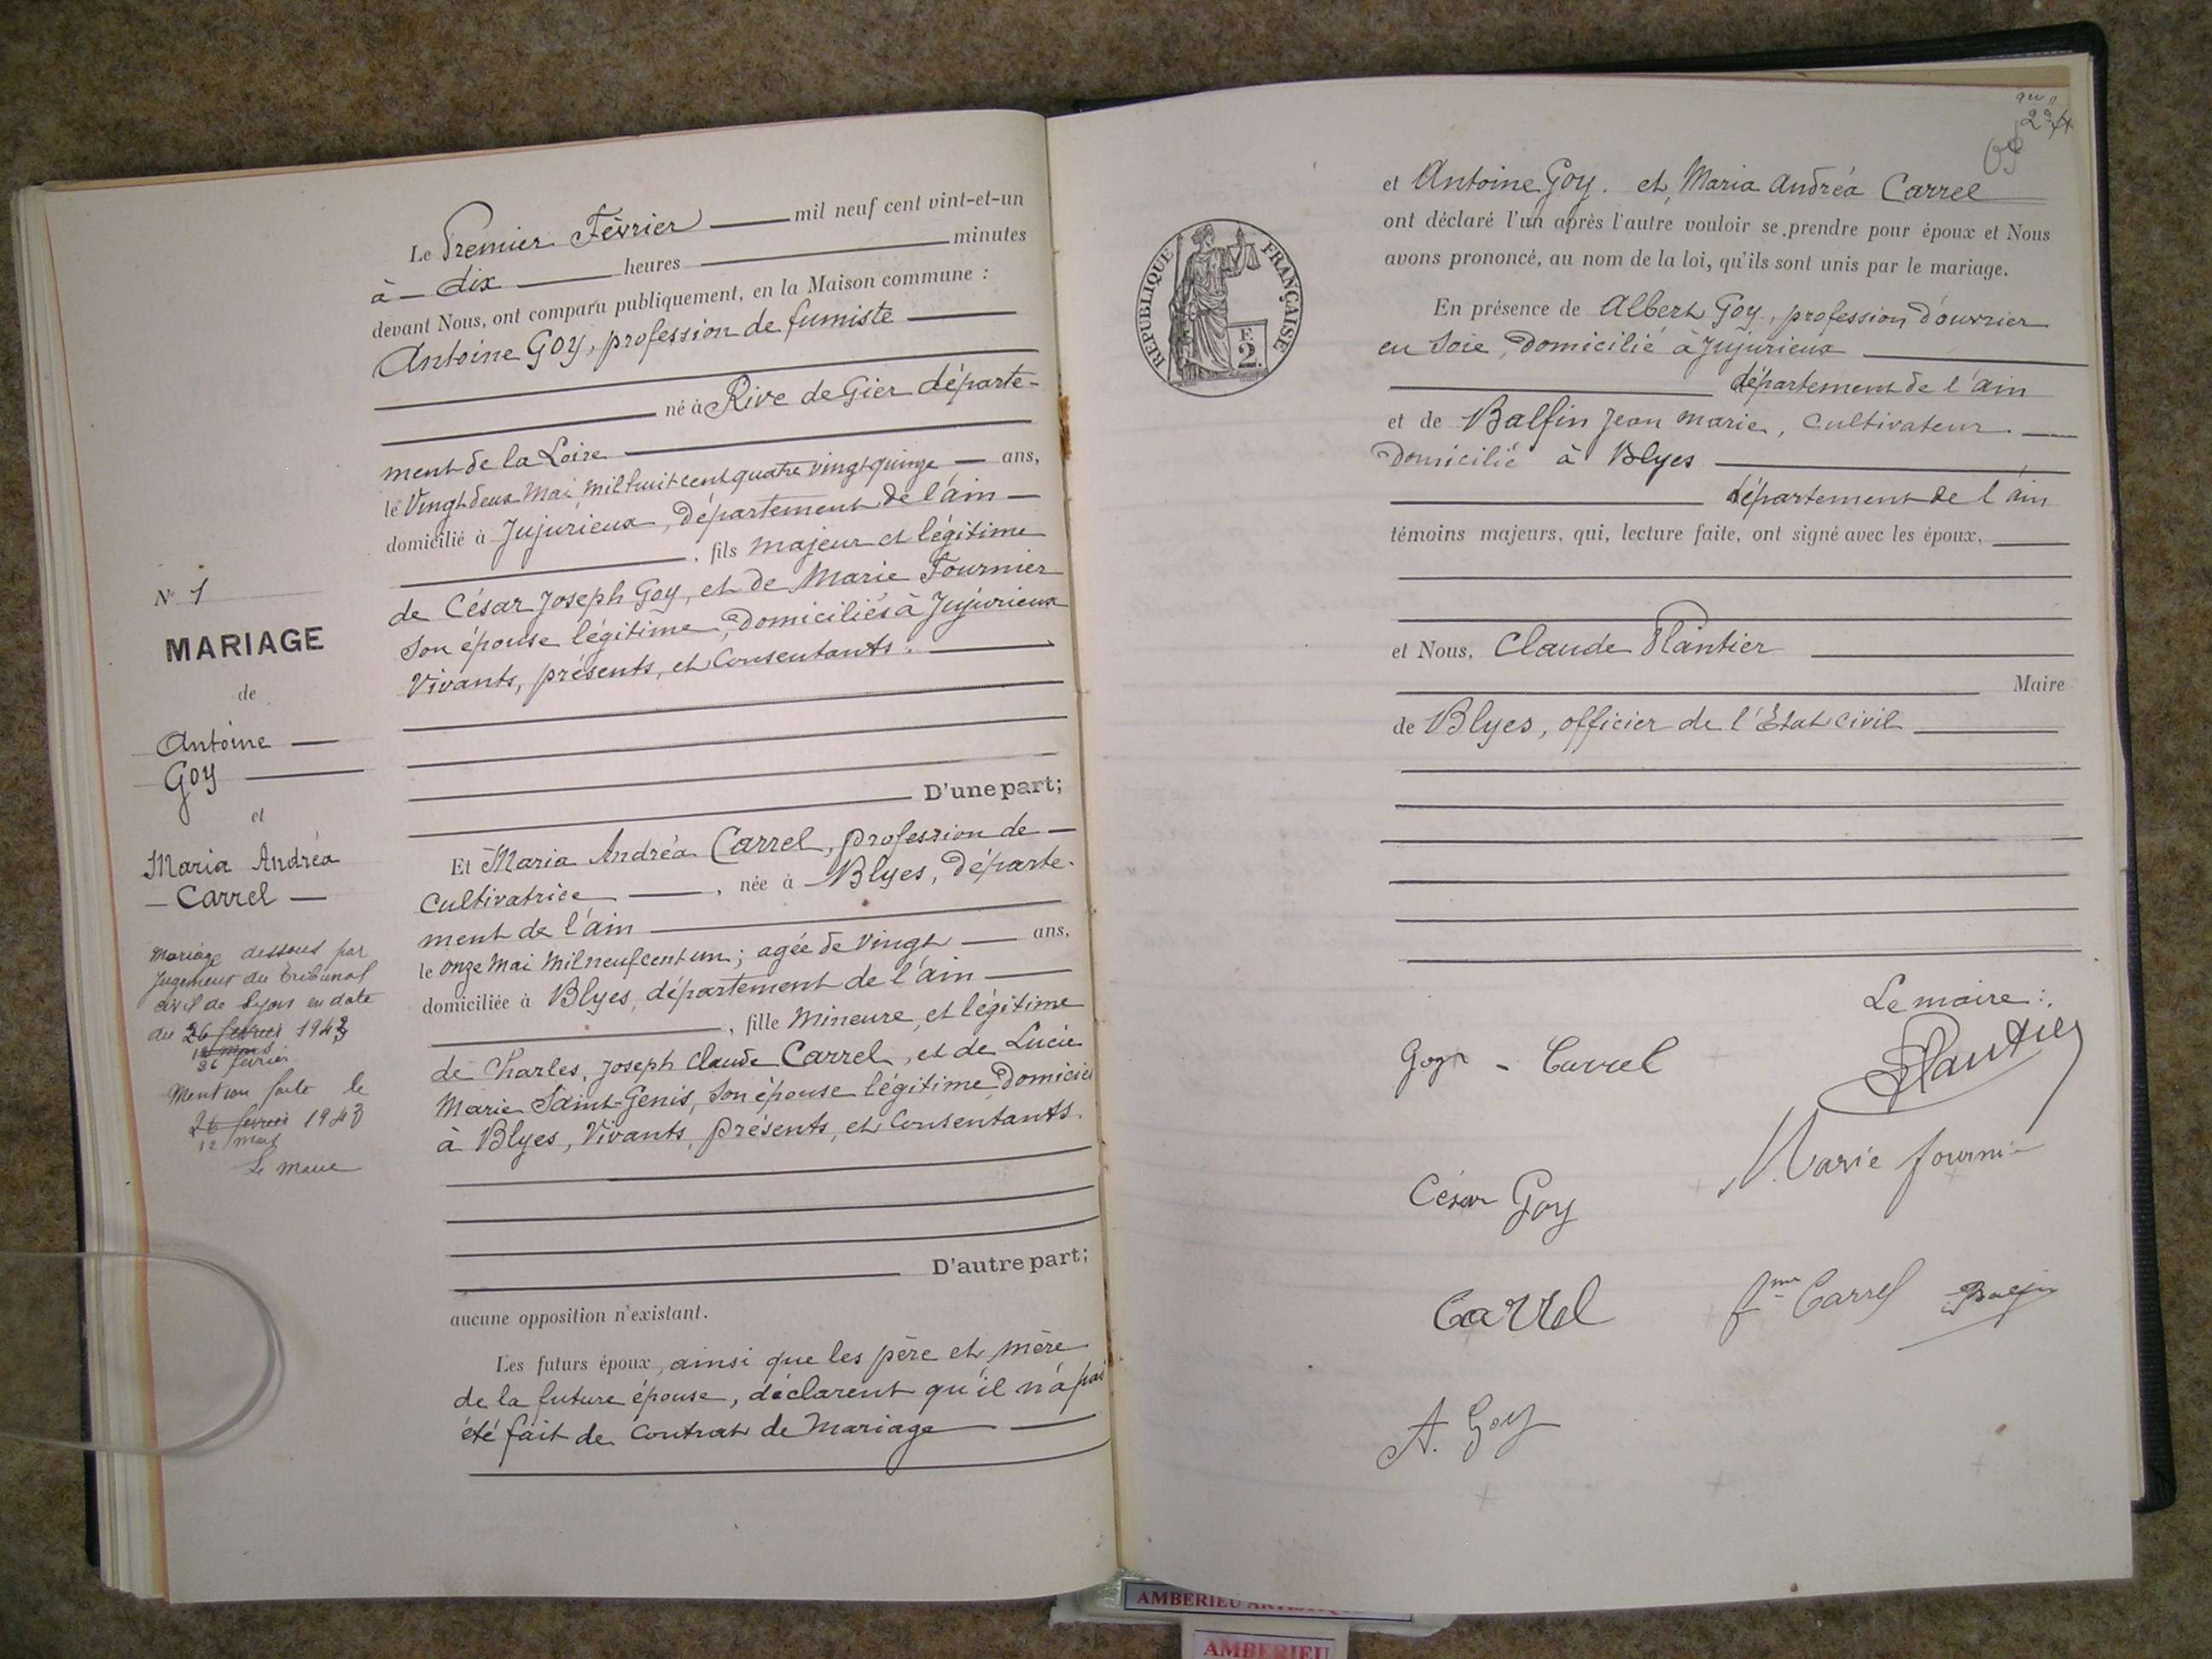 Le Premier Février mil neuf cent vint-et-un
à dix heures minutes
devant Nous, ont comparu publiquement, en la Maison commune :
Antoine Goy, profession de fumiste
né à Rive de Gier départe-
ment de la Loire
le Vingt deux Mai mil huit cent quatre vingt quinze ans,
domicilié à Jujurieux, Département de l'ain
, fils majeur et légitime
de César Joseph Goy, et de Marie Fournier
son épouse légitime, Domiciliés à Jujurieux
Vivants, présents, et Consentants.
D'une part;
Et Maria Andréa Carrel, profession de
Cultivatrice , née à Blyes, Départe-
ment de l'ain
le onze Mai Mil neuf cent un; agée de vingt ans,
domiciliée à Blyes, département de l'ain
, fille Mineure, et légitime
de Charles, Joseph Claude Carrel, et de Lucie
Marie Saint-Genis, son épouse légitime, Domiciel
à Blyes, Vivants, présents, et Consentants.
D'autre part;
aucune opposition n'existant.
Les futurs époux, ainsi que les père et mère
de la future épouse, déclarent qu'il n'a pas
été fait de Contrat de Mariage
N° 1
MARIAGE
de
Antoine
Goy
et
Maria Andréa
Carrel
Mariage dessous par
Jugement du tribunal
civil de Lyon en date
du 26 fevrier 1943
12 mars
26 février
Mention faite le
26 fevrier 1943
12 mars
Le maire
et Antoine Goy. et Maria Andréa Carrel
ont déclaré l'un après l'autre vouloir se prendre pour époux et Nous
avons prononcé, au nom de la loi, qu'ils sont unis par le mariage.
En présence de Albert Goy, profession d'ouvrier
en Soie, Domicilié à Jujurieux
département de l'ain
et de Balfin Jean Marie, Cultivateur.
Domicilié à Blyes
département de l'ain
témoins majeurs, qui, lecture faite, ont signé avec les époux,
et Nous, Claude Plantier
Maire
de Blyes, officier de l'Etat civil
REPUBLIQUE FRANÇAISE
F.
2.
Le maire :
Goy - Carrel
Plantier
Marie fournier
César Goy
Carrel
fme Carrel Balfin
A. Goy
AMBERIEU
AMBERIEU